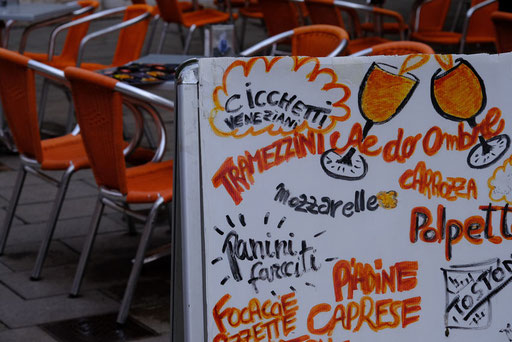 CICCHETTI
VENEZIANI
TRAMEZZINI
CAE do OMBRE
Mozzarelle
CARROZZA
POLPETTE
Panini
farciti
PIADINE
CAPRESE
FOCACCE
TOSTONI